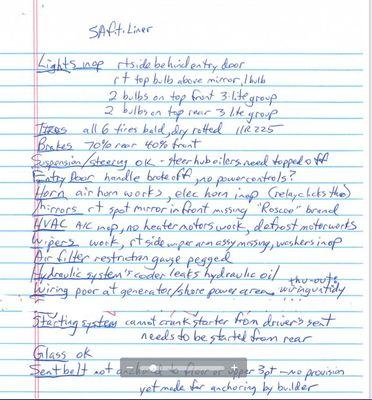 SAf-T-Liner
Lights inop rt side behind entry door
rt top bulb above mirror, 1 bulb
2 bulbs on top front 3 lite group
2 bulbs on top rear 3 lite group
Tires all 6 tires bald, dry rotted 11R225
Brakes 70% rear 40% front
Suspension/steering OK - steer hub oilers need topped off
Entry Door handle broke off, no power controls?
Horn air horn works, elec horn inop (relay clicks tho)
Mirrors rt spot mirror in front missing "Roscoe" brand
HVAC A/C inop, no heater motors work, defrost motor works
Wipers work, rt side wiper arm assy missing, washers inop
Air filter restriction gauge pegged
Hydraulic system's cooler leaks hydraulic oil
Wiring poor at generator/shore power area, thru-out wiring untidy
Starting system cannot crank starter from driver's seat
needs to be started from rear
Glass ok
Seat belt not anchored to floor or upper 3pt - no provision
yet made for anchoring by builder